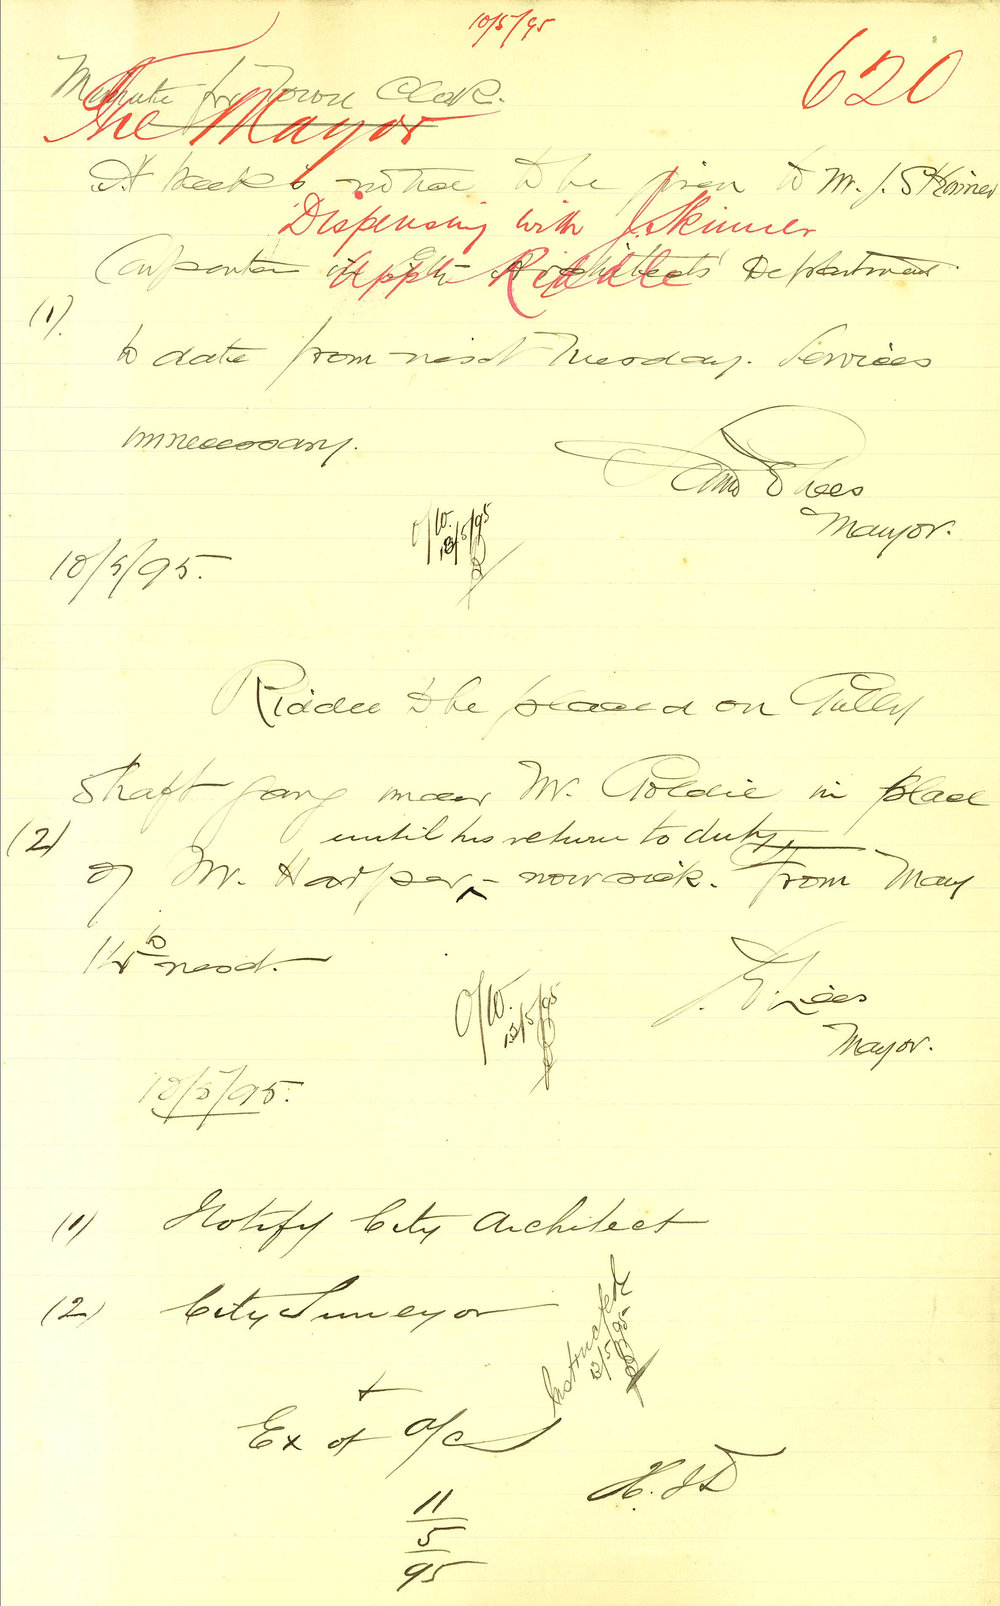 10/5/95
620
Minute for Town Clerk.
The Mayor
A week's notice to be given to Mr. J. Skinner
Dispensing with J. Skinner
Carpenter in City Architects Department
Appt Riddle
(1)
to date from next Tuesday. Services
unnecessary.
Lees
Mayor.
O/W.
12/5/95
10/5/95.
Riddle to be placed on Gully
Shaft gang under Mr. Goldie in place
(2)
until his return to duty
of Mr. Harper, - now sick. From May
14th next.
Lees
Mayor.
O/W.
12/5/95
10/5/95.
(1) Notify City Architect
(2) City Surveyor
Instructed
12/5/95
+
Ex of A/cs
H.
11
5
95